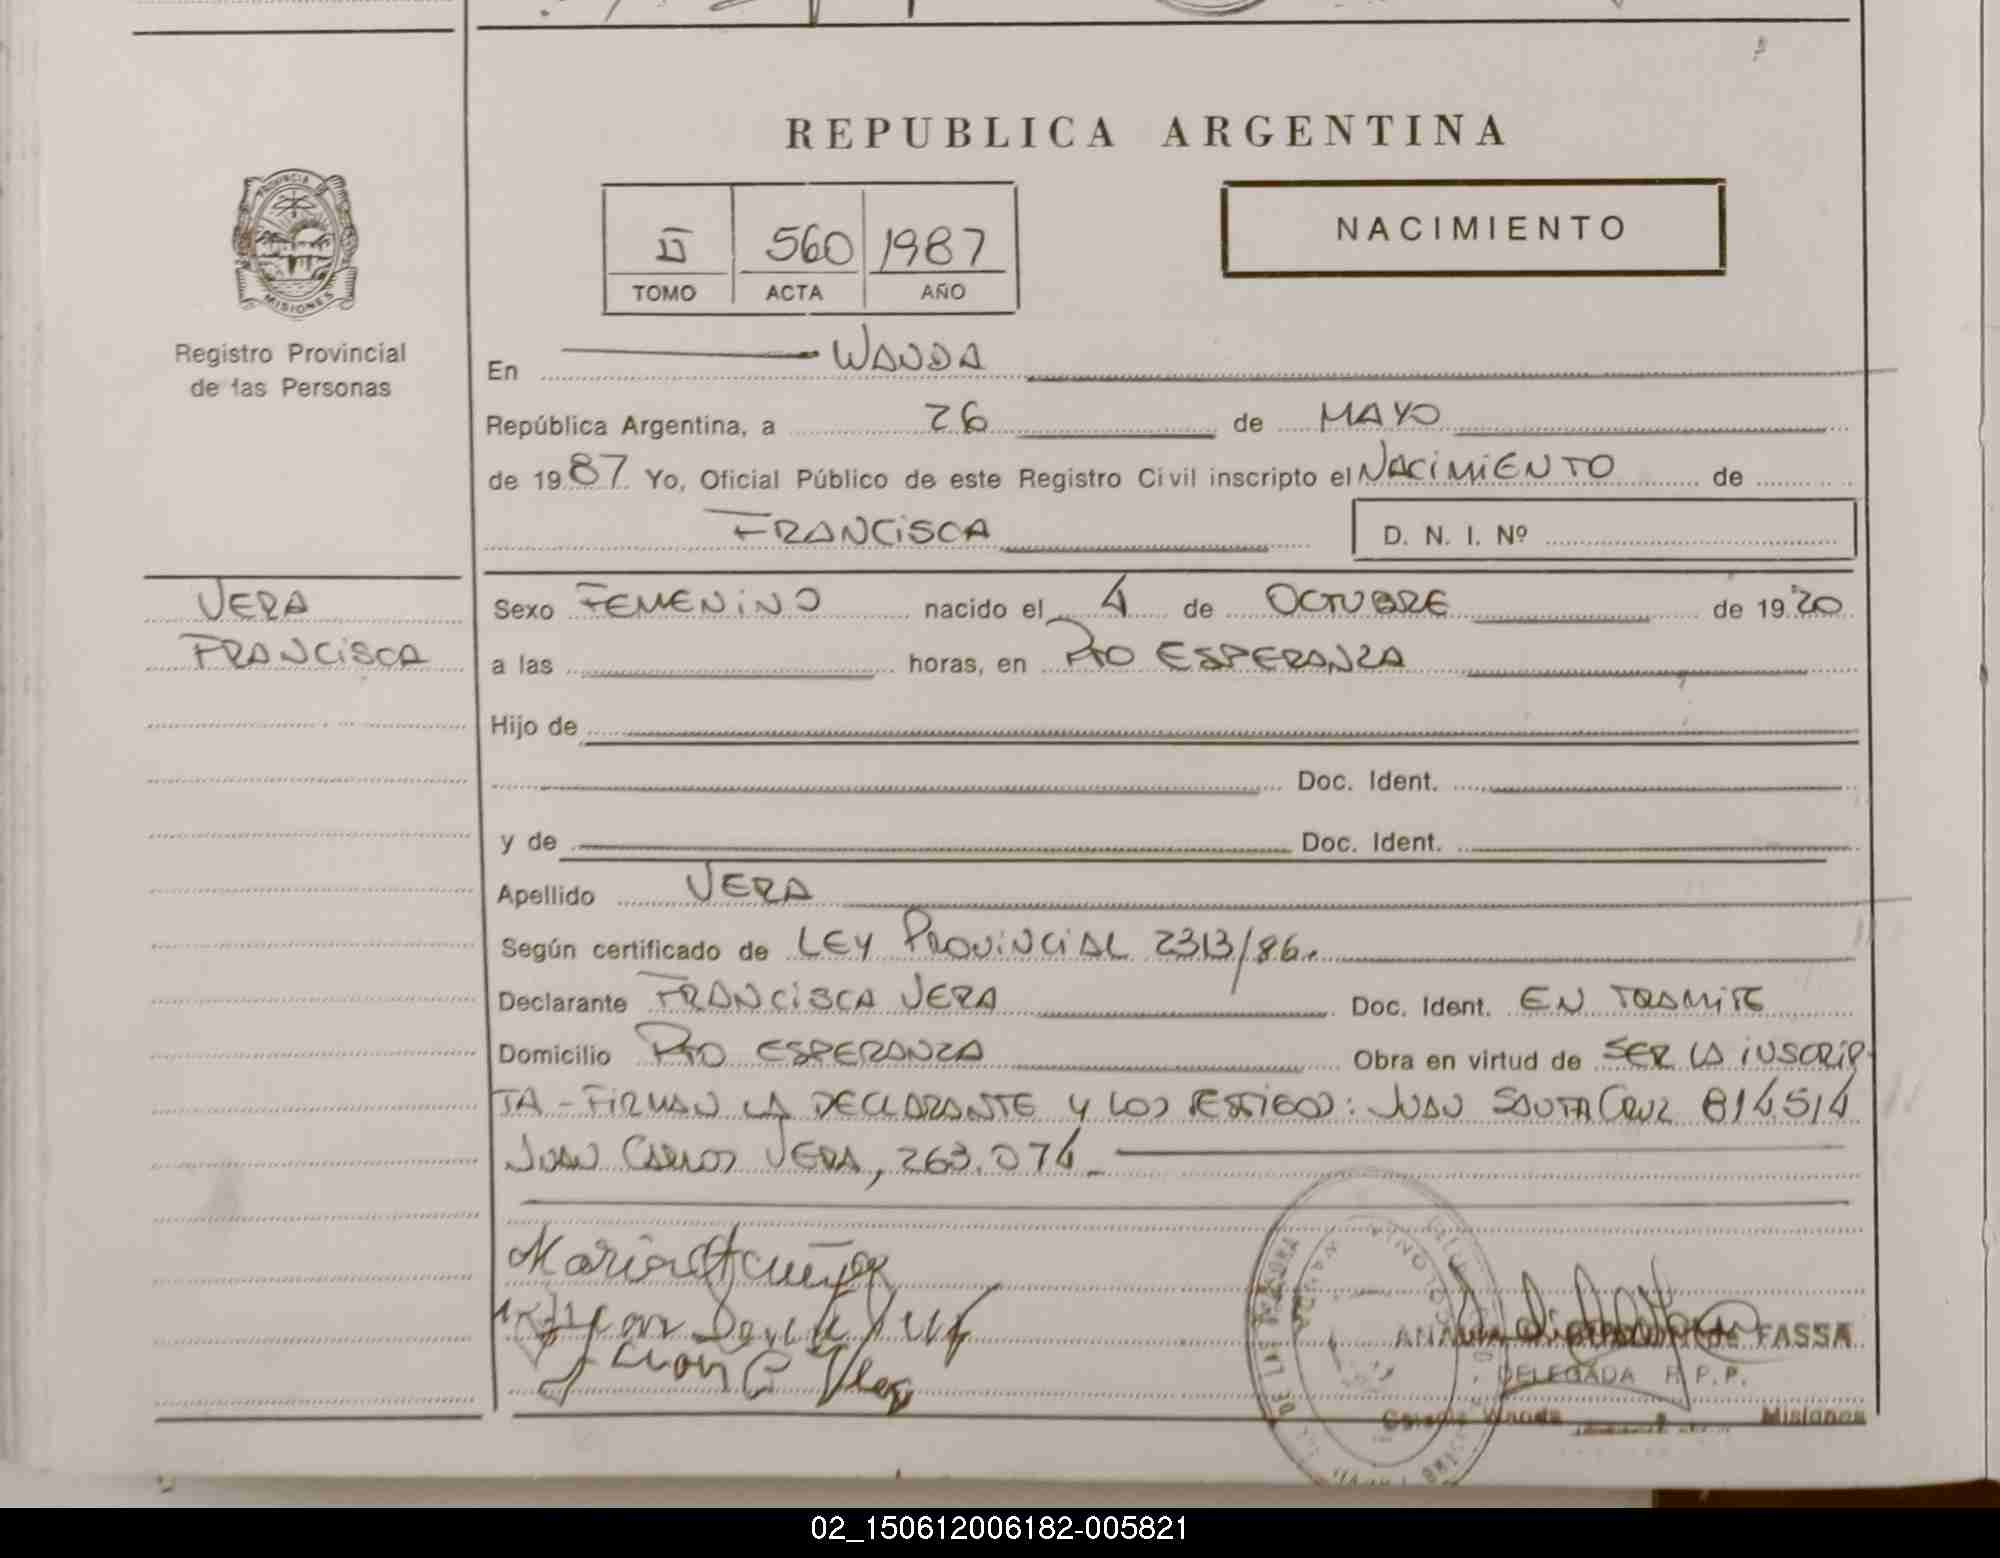 REPUBLICA ARGENTINA
NACIMIENTO
II 560 1987
TOMO ACTA AÑO
PROVINCIA DE
MISIONES
Registro Provincial
de las Personas
En WANDA
República Argentina, a 26 de MAYO
de 1987 Yo, Oficial Público de este Registro Civil inscripto el NACIMIENTO de
FRANCISCA D. N. I. Nº
VERA
FRANCISCA
Sexo FEMENINO nacido el 4 de OCTUBRE de 1920
a las horas, en Pto ESPERANZA
Hijo de
Doc. Ident.
y de Doc. Ident.
Apellido VERA
Según certificado de LEY PROVINCIAL 2313/86.
Declarante FRANCISCA VERA Doc. Ident. EN TRAMITE
Domicilio Pto ESPERANZA Obra en virtud de SER LA INSCRIP-
TA - FIRMAN LA DECLARANTE y LOS TESTIGOS: JUAN SANTA CRUZ 814514
JUAN CARLOS VERA, 263.074
Juan C
FASSA
DELEGADA R.P.P.
Colonia Wanda Misiones
02_150612006182-005821